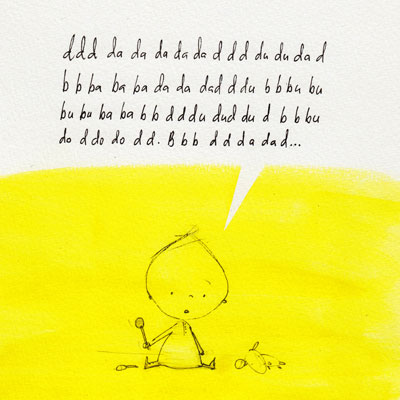 d d d da da da da da d d d du du da d
b b ba ba ba da da dad d du b b bu bu
bu bu ba ba b b d d du dud du d b b bu
do d do do d d. B b b d d d a da d...